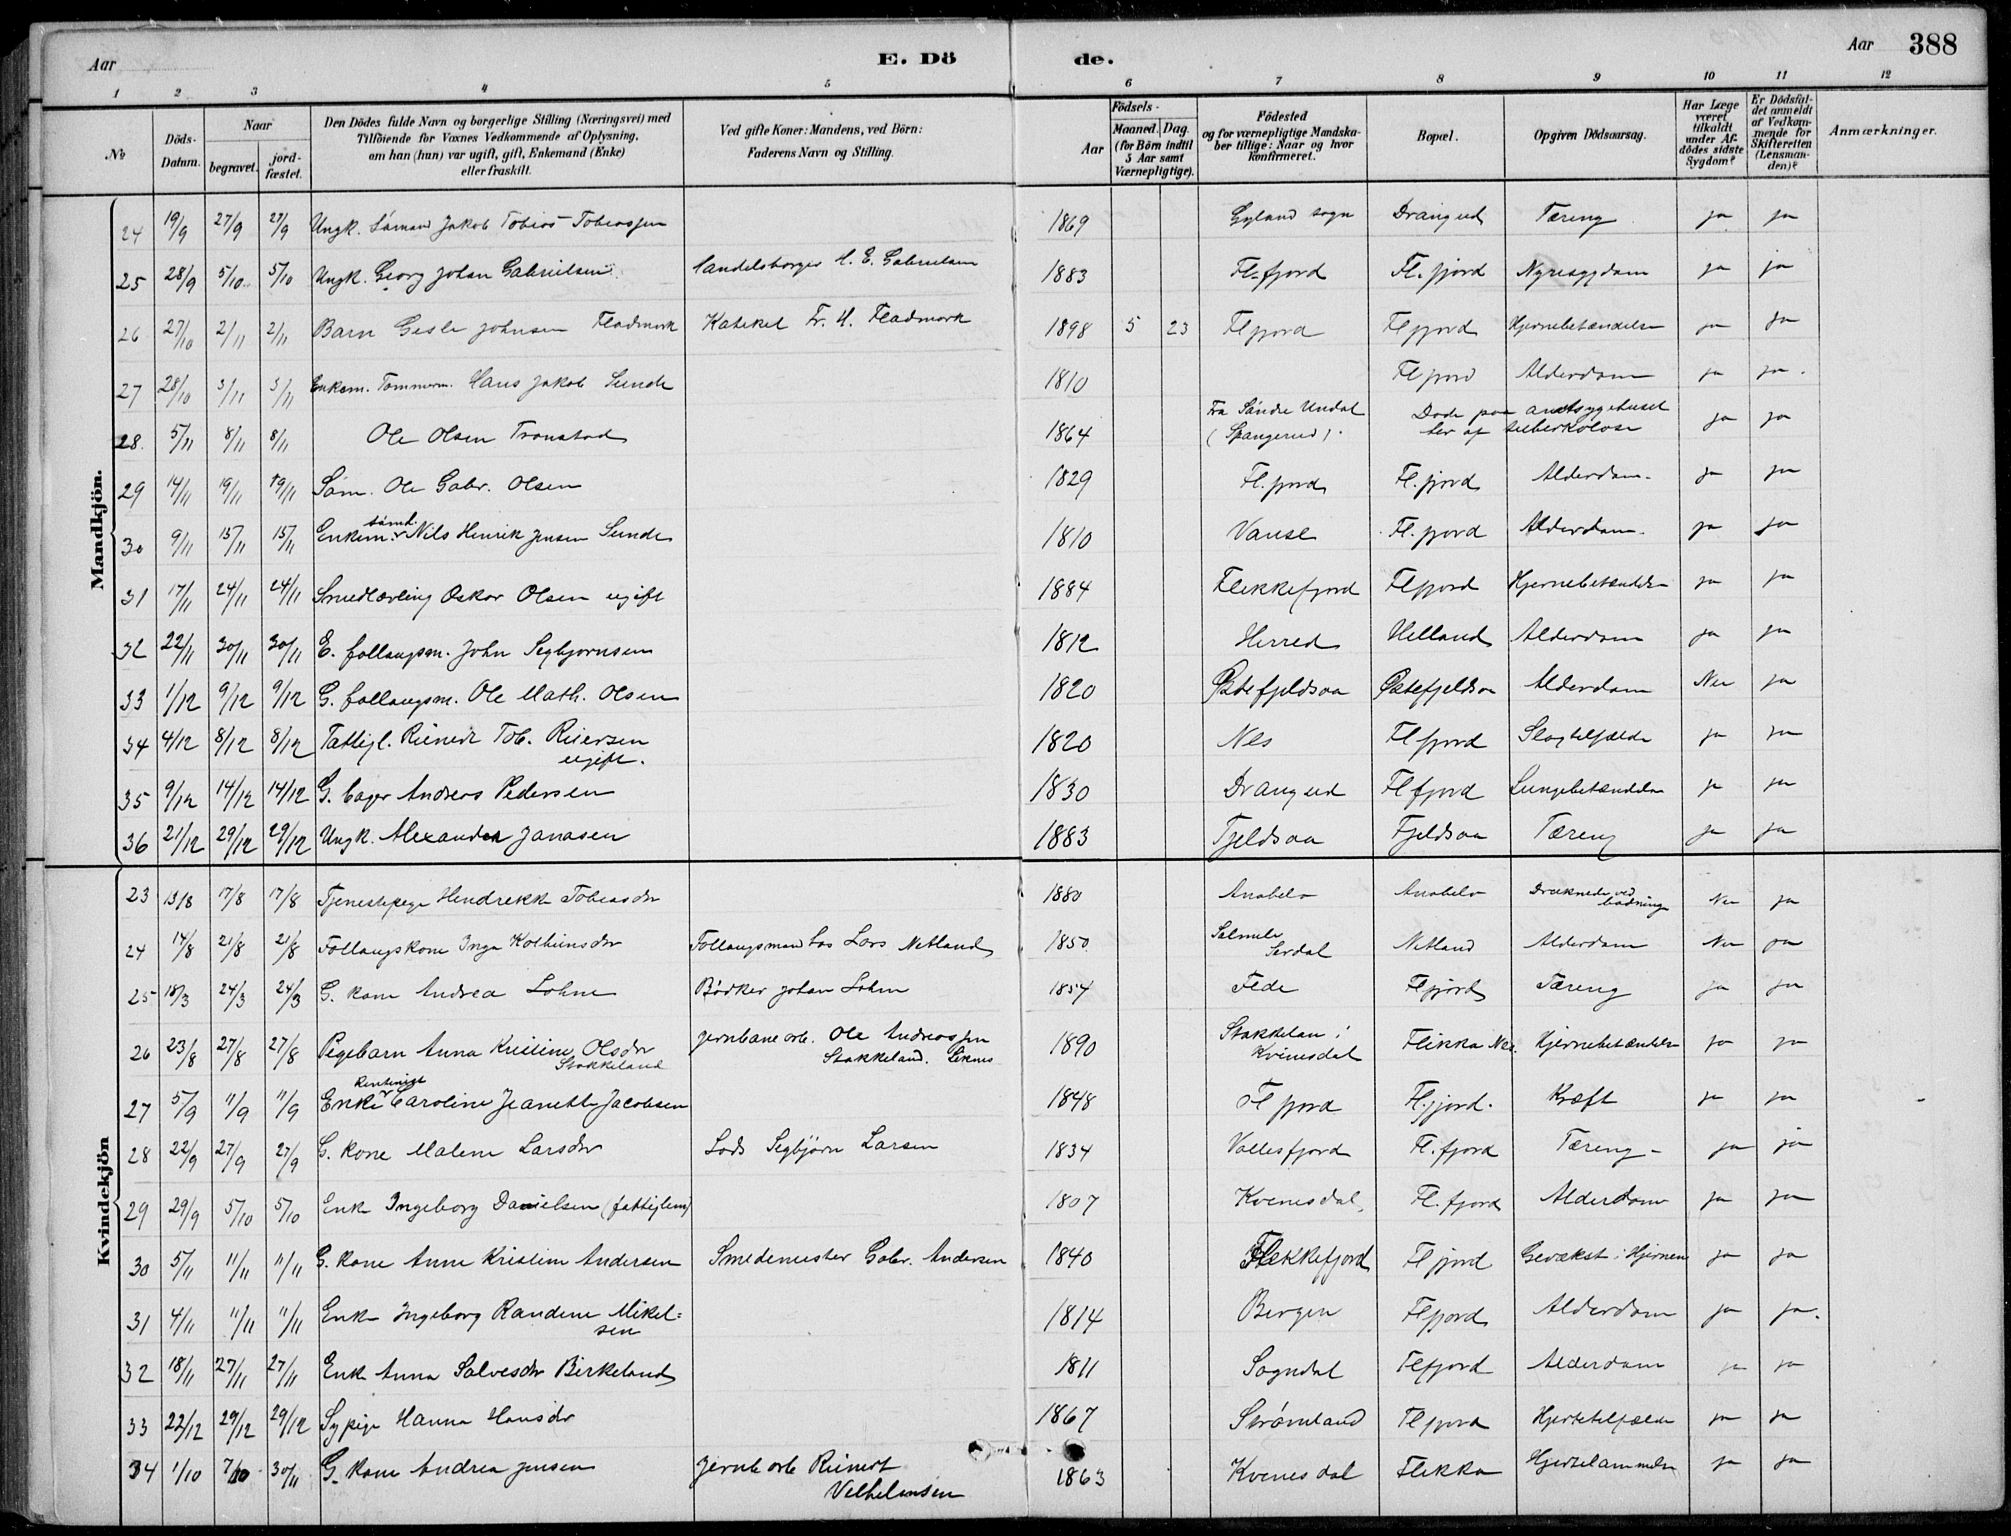 Aar E. Dö de. Aar 388
1 2 3 4 5 6 7 8 9 10 11 12
№
Döds-Datum.
Naar
begravet.
jord-fæstet.
Den Dödes fulde Navn og borgerlige Stilling (Næringsvei) med
Tilföiende for Voxnes Vedkommende af Oplysning,
om han (hun) var ugift, gift, Enkemand (Enke)
eller fraskilt.
Ved gifte Koner: Mandens, ved Börn:
Faderens Navn og Stilling.
Aar
Födsels-
Maaned. Dag.
(for Börn indtil
5 Aar samt
Værnepligtige).
Födested
og for værnepligtige Mandska-
ber tillige: Naar og hvor
konfirmeret.
Bopæl.
Opgiven Dödsaarsag.
Har Læge
været
tilkaldt
under Af-
dödes sidste
Sygdom?
Er Dödsfal-
det anmeldt
af Vedkom-
mende for
Skifteretten
(Lensman-
den)?
Anmærkninger.
Mandkjön.
24 19/9 27/9 27/9 Ungk. Sömand Jakob Tobias Tobiassen 1869 Gyland sogn Drangeid Tæring ja ja
25 28/9 5/10 5/10 Ungk. Georg Johan Gabrielsen Handelsborger H. E. Gabrielsen 1883 Fl.fjord Fl.fjord Nyresygdom ja ja
26 27/10 2/11 2/11 Barn Gisle Johnsen Fladmark Kateket Fr. H. Fladmark 1898 5 23 Flfjord Flfjord Hjernebetændelse ja ja
27 28/10 3/11 3/11 Enkem. Tømmerm. Hans Jakob Sunde 1810 Flfjord Alderdom ja ja.
28. 5/11 8/11 8/11 Ole Olsen Tronstad 1864 Fra Söndre Undal Døde paa amtsygehuset ja ja
(Spangereid). her af tuberkolose
29 14/11 19/11 19/11 Søm. Ole Gabr. Olsen 1829 Fl.fjord Fl.fjord Alderdom. ja ja
30 9/11 15/11 15/11 Enkem. Nils Henrik Jensen Sunde 1810 Vanse Fl.fjord Alderdom. ja ja
31 17/11 24/11 24/11 Smedlærling Oskar Olsen ugift 1884 Flekkefjord Flfjord Hjernebetændelse ja ja
32 22/11 30/11 30/11 E. follaugsm. John Segbjørnsen 1812 Herred Helland Alderdom ja ja
33 1/12 9/12 9/12 G. follaugsm. Ole Math. Olsen 1820 Østefjeldsaa Østefjeldsaa Alderdom Nei ja
34 4/12 8/12 8/12 Fattigl. Reinert Tob. Reiersen 1820 Nes Flfjord Slagtilfælde ja ja
ugift.
35 9/12 14/12 14/12 G. bager Andreas Pedersen 1830 Drangeid Flfjord Lungebetændelse ja ja
36 21/12 29/12 29/12 Ungk. Alexander Janasen 1883 Fjeldsaa Fjeldsaa Tæring ja ja
Kvindekjön
23 13/8 17/8 17/8 Tjenestepige Hendrekke Tobiasdr 1880 Anabelø Anabelø Druknede ved Nei ja
badning
24 14/8 21/8 21/8 Follaugskone Inga Kolbeinsdr Follaugsmand Las Lars Netland 1850 Salmeli Netland Alderdom Nei ja
Sirdal
25 18/3 24/3 24/3 G. kone Andrea Lohne Bødker Johan Lohne 1854 Fede Flfjord Tæring ja ja
26 23/8 27/8 27/8 Pigebarn Anna Kristine Olsdr Jernbanearb. Ole Andreassen 1890 Stakkelan i Flikka Nes. Hjernebetændelse ja ja
Stakkeland Stakkeland. Liknes Kvinesdal
27 5/9 11/9 11/9 Enke Caroline Jeanette Jacobsen 1848 Flfjord Fl.fjord. Kræft ja ja
28 22/9 27/9 27/9 G. kone Malene Larsdr Lods Segbjørn Larsen 1834 Vollesfjord Fl.fjord Tæring ja ja
29 29/9 5/10 5/10 Enke Ingeborg Danielsen (fattiglem) 1807 Kvenesdal Fl.fjord Alderdom ja ja
30 5/11 11/11 11/11 G. kone Anne Kristine Andersen Smedemester Gabr. Andersen 1840 Flekkefjord Flfjord Gevækst i Hjernen ja ja
31 4/11 11/11 11/11 Enke Ingeborg Randine Mikel= 1814 Bergen Flfjord Alderdom ja ja.
sen
32 18/11 27/11 27/11 Enke Anna Salvesdr Birkeland 1811 Sogndal Flfjord Alderdom ja ja
33 22/12 29/12 29/12 Sypige Hanna Hansdr 1867 Strømland Flfjord Hjertetilfælde ja ja
34 1/10 7/10 30/11 G. kone Andrea Jensen Jernb arb Reinert 1863 Kvenesdal Flikka Hjertelammelse ja ja
Velhelmsen